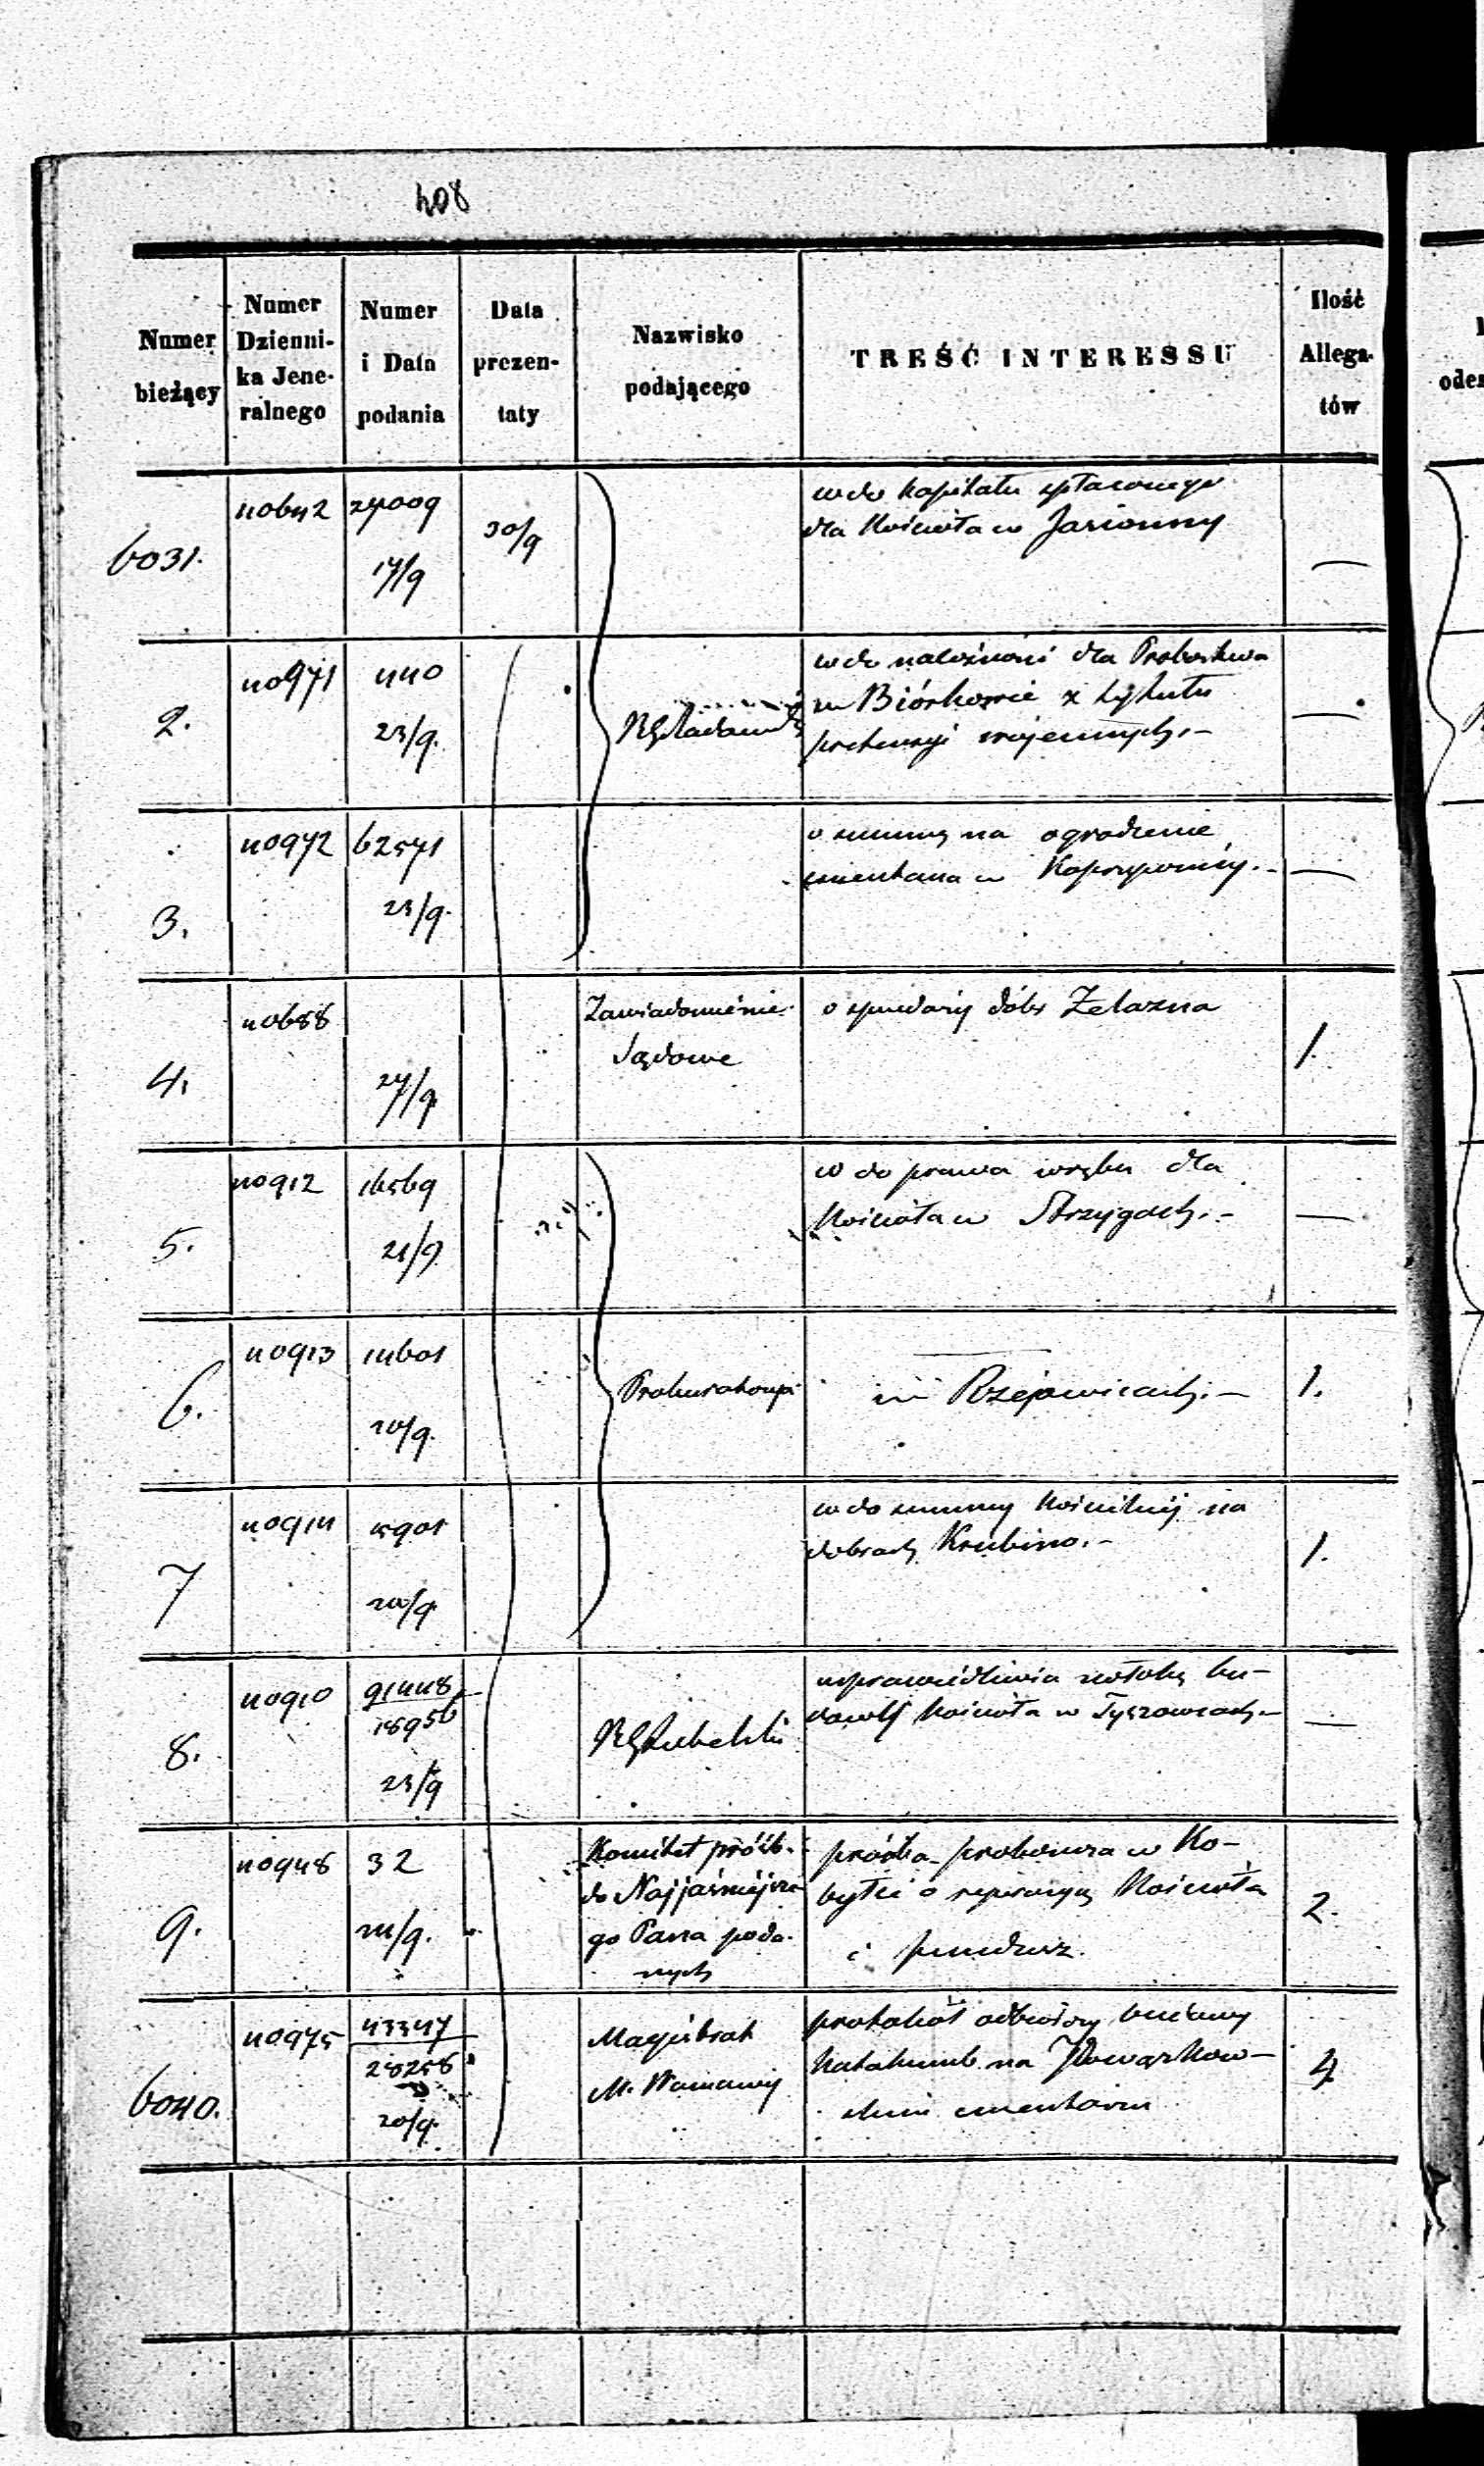 408
Numer bieżący
Numer Dzienni-ka Jene-ralnego
Numer i Data podania
Data prezen-taty
Nazwisko podającego
TREŚĆ INTERESSU
Ilość Allega-tów
6031.
40642
27009
17/9
30/9
wdo kapitału spłaconego
dla Kościoła w Jasionny
—
2.
40971
440
23/9.
RG Radomski
wdo należności dla Probostwa
w Biórkowie z tytułu
pretensyi wojennych.–
—
3.
40972
62571
23/9.
o summę na ogrodzenie
cmentarza w Koprzywnicy.–
—
4.
40688
27/9
Zawiadomienie
Sądowe
o sprzedaży dóbr Żelazna
1.
5.
40912
16569
21/9
w do prawa wrębu dla
Kościoła w Strzygach.–
—
6.
40913
14601
20/9.
Prokuratorya
——
w Rzejowicach.–
1.
7
40914
5901
20/9
wdo summy kościelnej na
dobrach Krubino.–
1.
8.
40910
91448
18956
23/9
RG Lubelski
usprawiedliwia zwłokę bu-
dowly Kościoła w Tyszowcach.–
—
9.
40948
32
24/9.
Komitet próśb
do Najjaśniejsze
go Pana poda-
nych
prośba proboszcza w Ko-
byłce o reperacyą Kościoła
i fundusz.
2.
6040.
40975
43347
28258
20/9.
Magistrat
M. Warszawy
protokół odbiory budowy
Katakumb na Powązkow-
skim cmentarzu
4